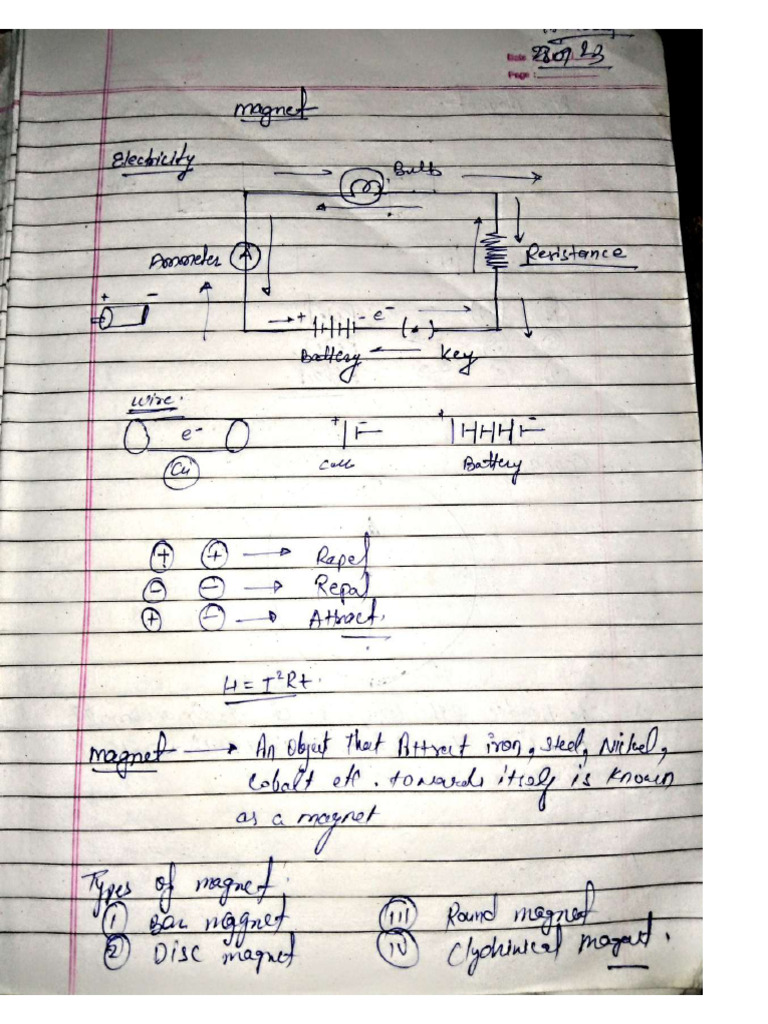 Date 28.07.23
Page :
Magnet
Electricity
Bulb
Ammeter A
Resistance
+ -
+ - e⁻ (•)
Battery Key
Wire.
e⁻
+ - + -
Cu Cell Battery
+ + → Rapel
- - → Repal
+ - → Attract.
H = I²Rt.
Magnet → An Object That Attract iron, Steel, Nickel,
Cobalt etc. towards itself is known
as a magnet
Types of magnet.
I Bar magnet III Round magnet
2 Disc magnet IV Clyohinical Magnet.